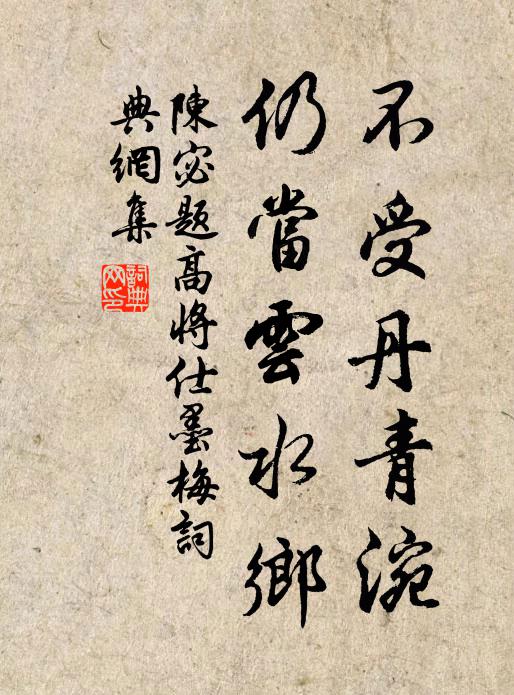 不受丹青涴
仍當雲水鄉
陳宓題高將仕墨梅詞
典網集
詞典網印